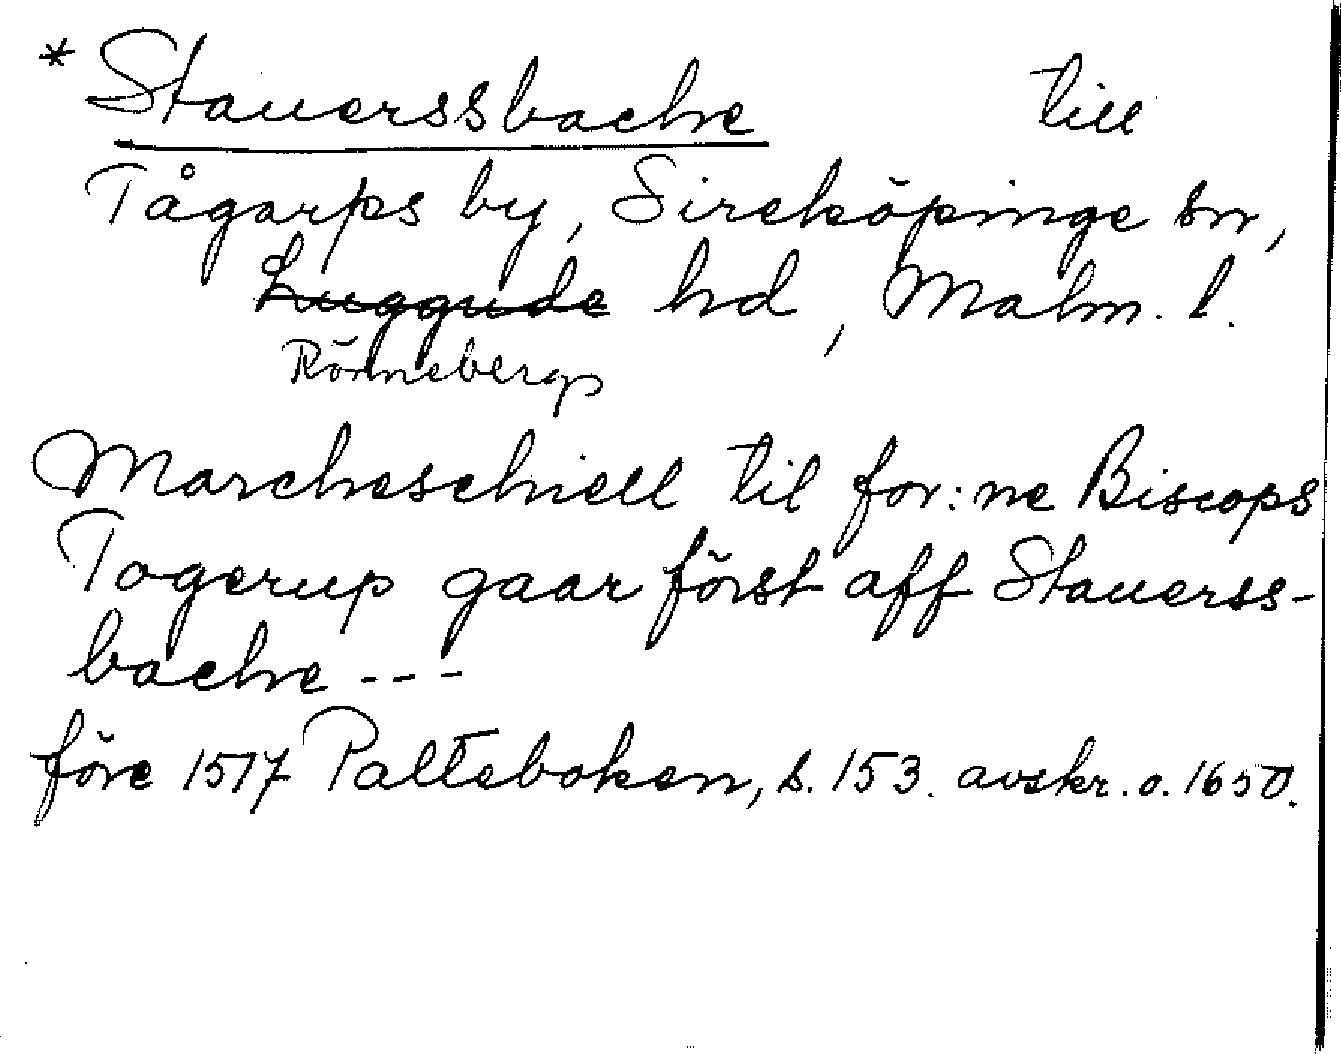 * Stauerssbache till
Tågarps by, Sireköpinge sn,
Luggude hd, Malm. l.
Rönnebergs
Marcheschiell til for:ne Biscops
Togerup gaar först aff Stauerss-
bache ---
före 1517 Palteboken, s. 153. avskr. o. 1650.